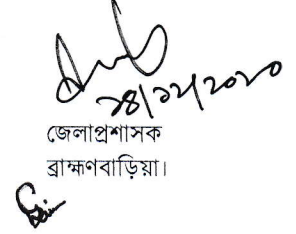 ২৪/১২/২০২০
জেলাপ্রশাসক
ব্রাহ্মণবাড়িয়া।